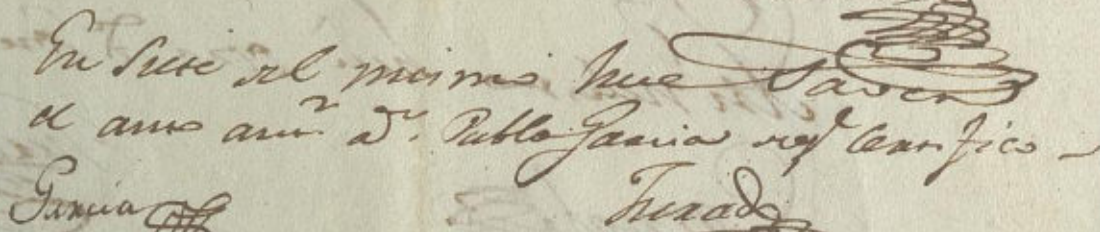 En siete del mismo hice saver
el auto antr. a Dn. Pablo Garcia regr. Certifico
Garcia Jurado